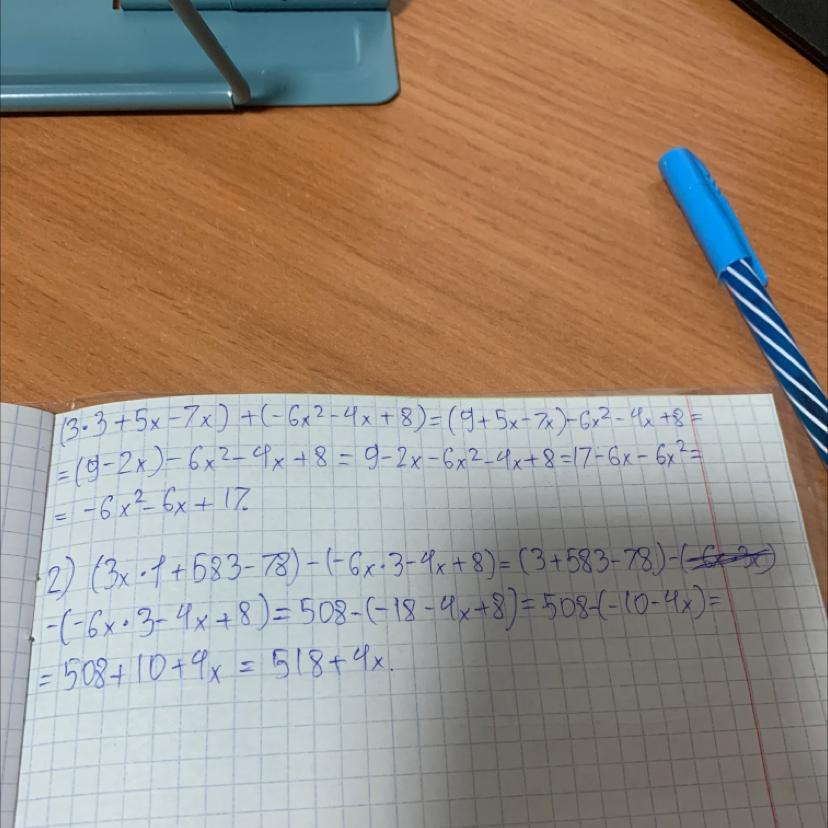 (3·3+5x-7x)+(-6x²-4x+8)=(9+5x-7x)-6x²-4x+8=
=(9-2x)-6x²-4x+8=9-2x-6x²-4x+8=17-6x-6x²=
=-6x²-6x+17.
2) (3x·1+583-78)-(-6x·3-4x+8)=(3+583-78)-
-(-6x·3-4x+8)=508-(-18-4x+8)=508-(-10-4x)=
=508+10+4x=518+4x.